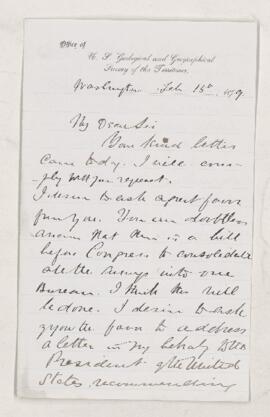 Office of
U. S. Geological and Geographical
Survey of the Territories.
Washington Feb 15th 1879
My Dear Sir
Your kind letter
came today. I will com-
ply with your request.
I desire to ask a great favor
from you. You are doubtless
aware that there is a bill
before Congress to consolidate
all the surveys into one
Bureau. I think this will
be done. I desire to ask
of you the favor to address
a letter in my behalf to the
President of the United
States, recommending